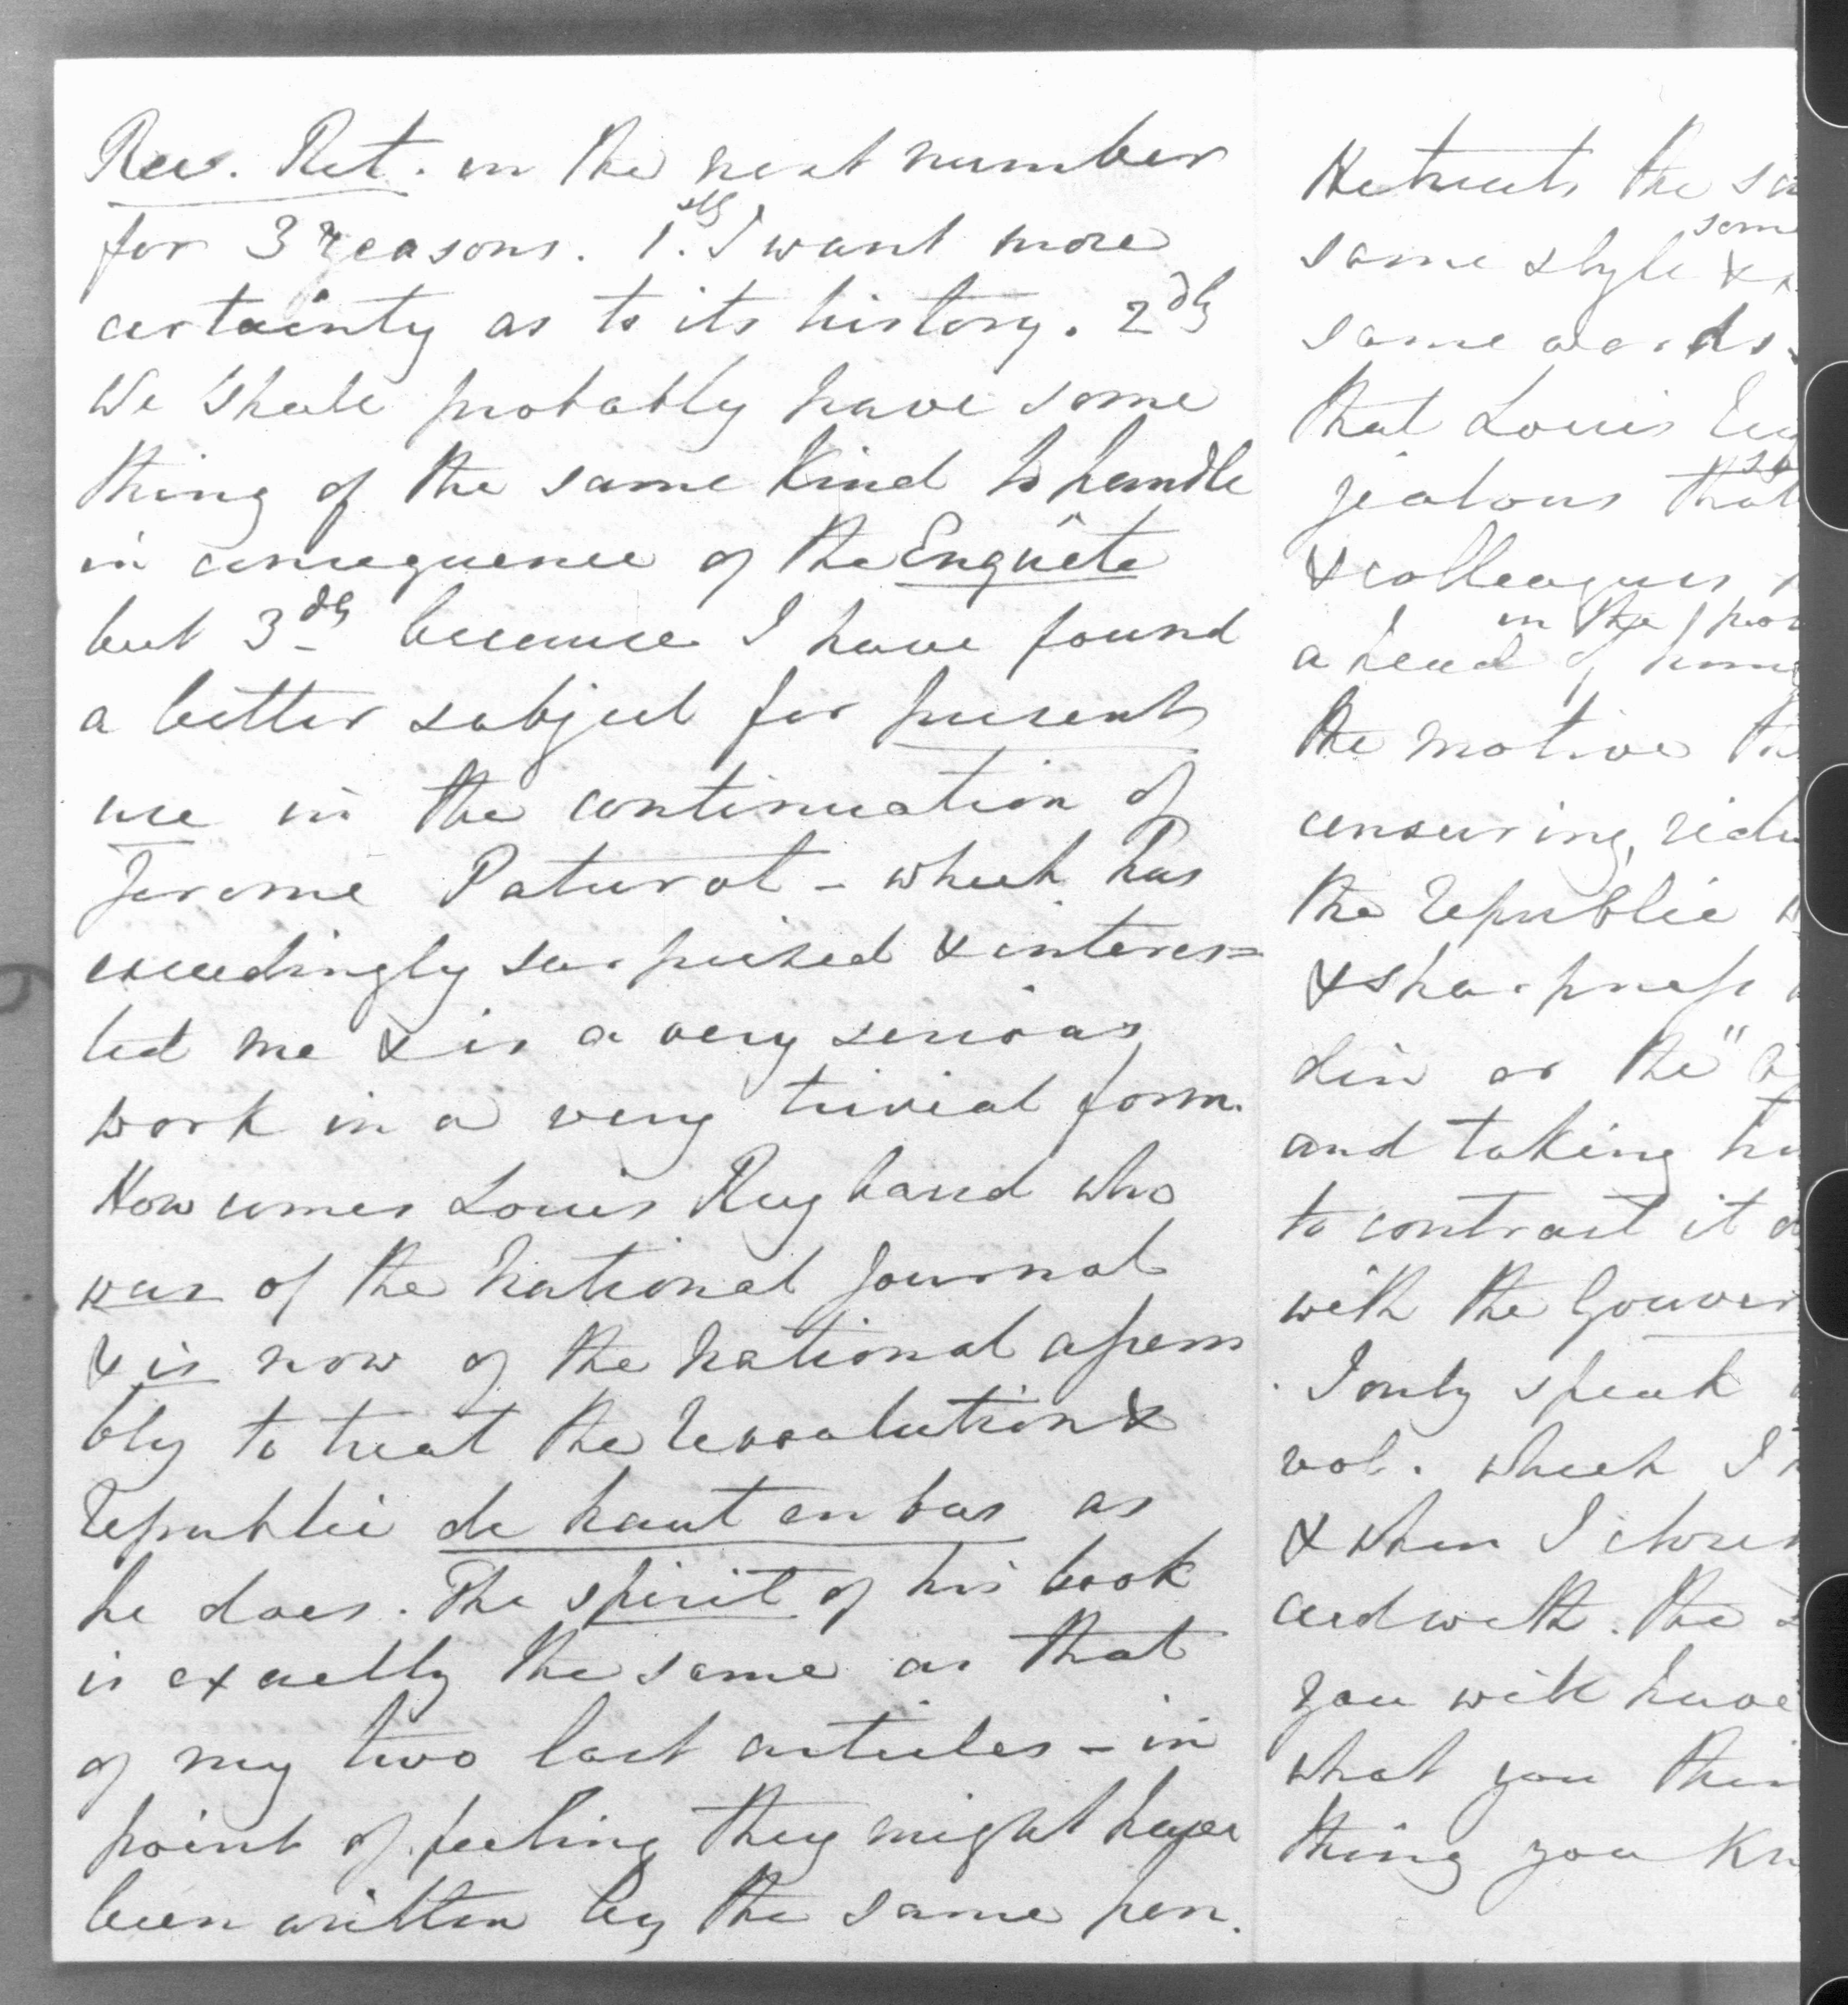 Rev. Ret. in the next number
for 3 reasons. 1.stly I want more
certainty as to its history. 2dly
We shall probably have some
thing of the same kind to handle
in consequence of the Enquête
but 3dly because I have found
a better subject for present
use in the continuation of
Jerome Paturot - which has
exceedingly surprised & interes=
ted me & is a very serious
work in a very trivial form.
How comes Louis Reybaud who
was of the National Journal
& is now of the National assem
bly to treat the revolution &
republic de haut en bas as
he does. The spirit of his book
is exactly the same as that
of my two last articles - in
point of feeling they might have
been written by the same pen.
He treats the sa
som
same style &
same words
that Louis Eug
so
jealous that
& colleagues
in the pro
a head of
the motive
censuring, ridu
the republic
& sharpness
din or the "
and taking
to contrast it
with the Gouver
I only speak
vol. which I
& when I
and with. The
you will have
what you thin
thing you kn